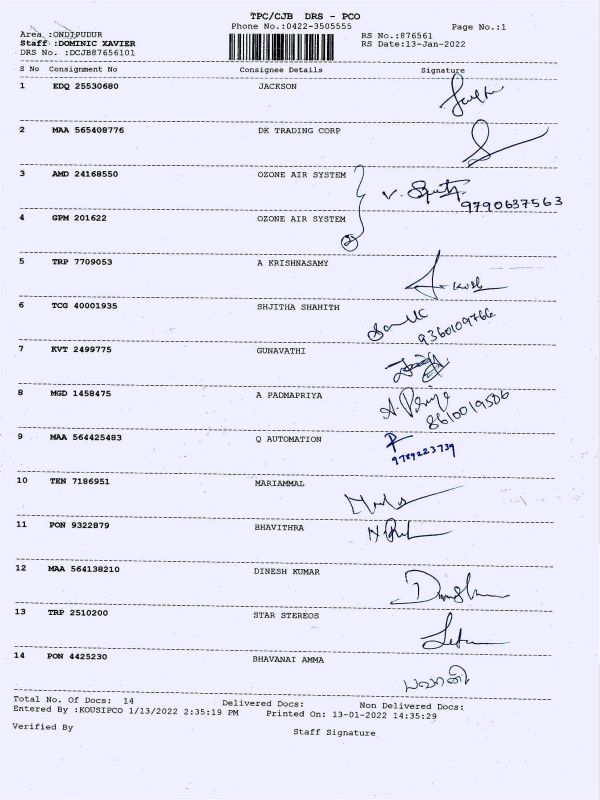 TPC/CJB DRS - PCO
Phone No.:0422-3505555
Page No.:1
Area :ONDIPUDUR
RS No.:876561
Staff :DOMINIC XAVIER
RS Date:13-Jan-2022
DRS No. :DCJB87656101
S No Consignment No Consignee Details Signature
1 EDQ 25530680 JACKSON
2 MAA 565408776 DK TRADING CORP
3 AMD 24168550 OZONE AIR SYSTEM
9790637563
4 GPM 201622 OZONE AIR SYSTEM
2
5 TRP 7709053 A KRISHNASAMY
6 TCG 40001935 SHJITHA SHAHITH
9360109766
7 KVT 2499775 GUNAVATHI
8 MGD 1458475 A PADMAPRIYA A. Priya
8610019586
9 MAA 564425483 Q AUTOMATION
9789223739
10 TEN 7186951 MARIAMMAL
11 PON 9322879 BHAVITHRA
12 MAA 564138210 DINESH KUMAR
13 TRP 2510200 STAR STEREOS
14 PON 4425230 BHAVANAI AMMA
Total No. Of Docs: 14 Delivered Docs: Non Delivered Docs:
Entered By :KOUSIPCO 1/13/2022 2:35:19 PM Printed On: 13-01-2022 14:35:29
Verified By Staff Signature